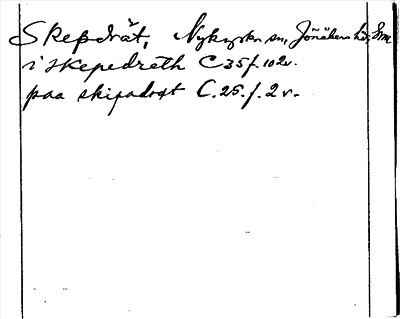 Skepdrät, Nykyrka sn, Jönåkers hd, Srm
i skepedreth C 35 f. 102v.
paa skipadræt C. 25. f. 2 v.